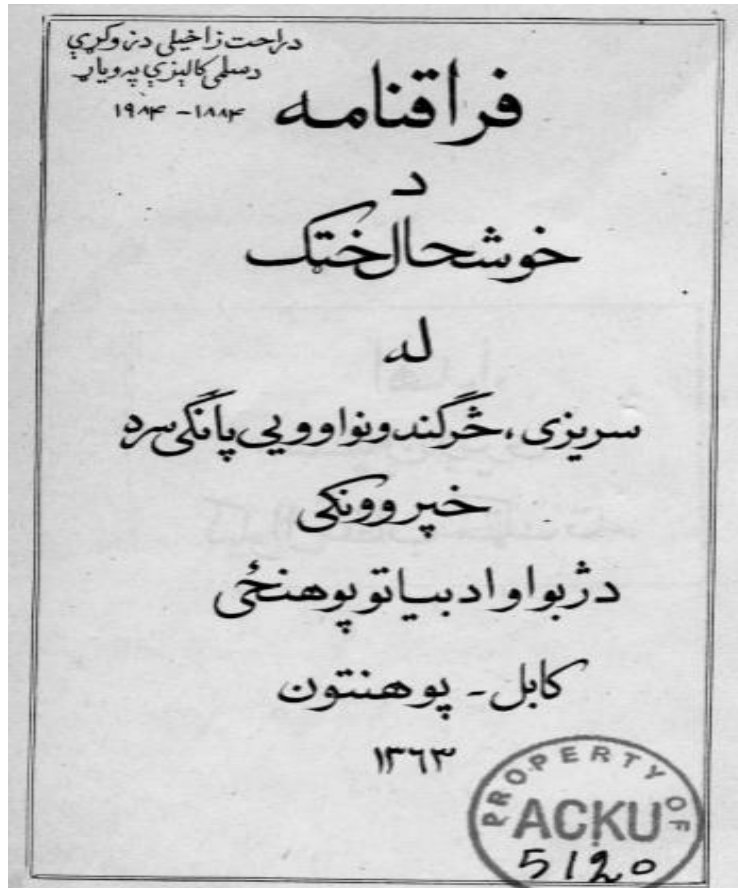 د راحت زاخيلي د زوکړې
د سلمې کاليزې په وياړ
۱۸۸۴ - ۱۹۸۴
فراقنامه
د
خوشحال خټک
له
سريزې، څرګندونو او ويي پانګې سره
خپروونکی
د ژبو او ادبياتو پوهنځی
کابل - پوهنتون
۱۳۶۳
PROPERTY OF
ACKU
5120